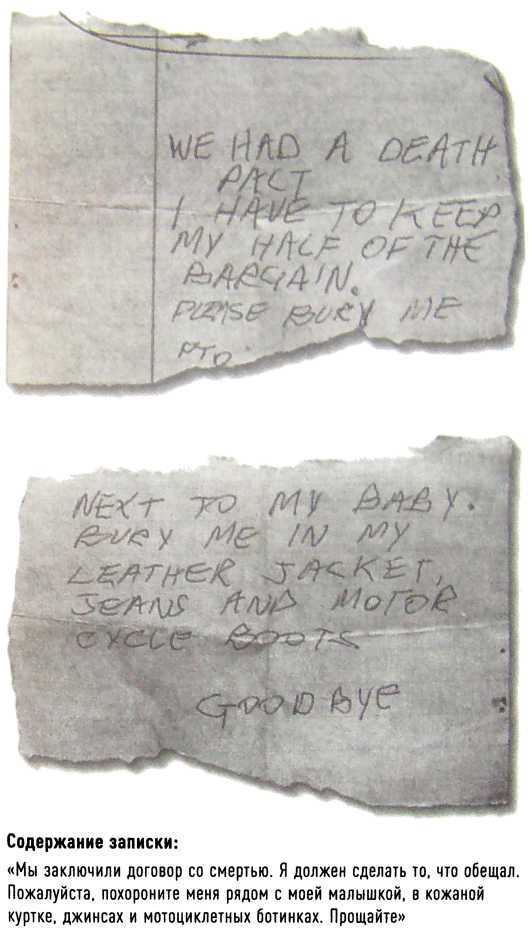 WE HAD A DEATH
PACT
I HAVE TO KEEP
MY HALF OF THE
BARGAIN.
PLEASE BURY ME
PTO
NEXT TO MY BABY.
BURY ME IN MY
LEATHER JACKET,
JEANS AND MOTOR
CYCLE BOOTS
GOODBYE
Содержание записки:
«Мы заключили договор со смертью. Я должен сделать то, что обещал.
Пожалуйста, похороните меня рядом с моей малышкой, в кожаной
куртке, джинсах и мотоциклетных ботинках. Прощайте»